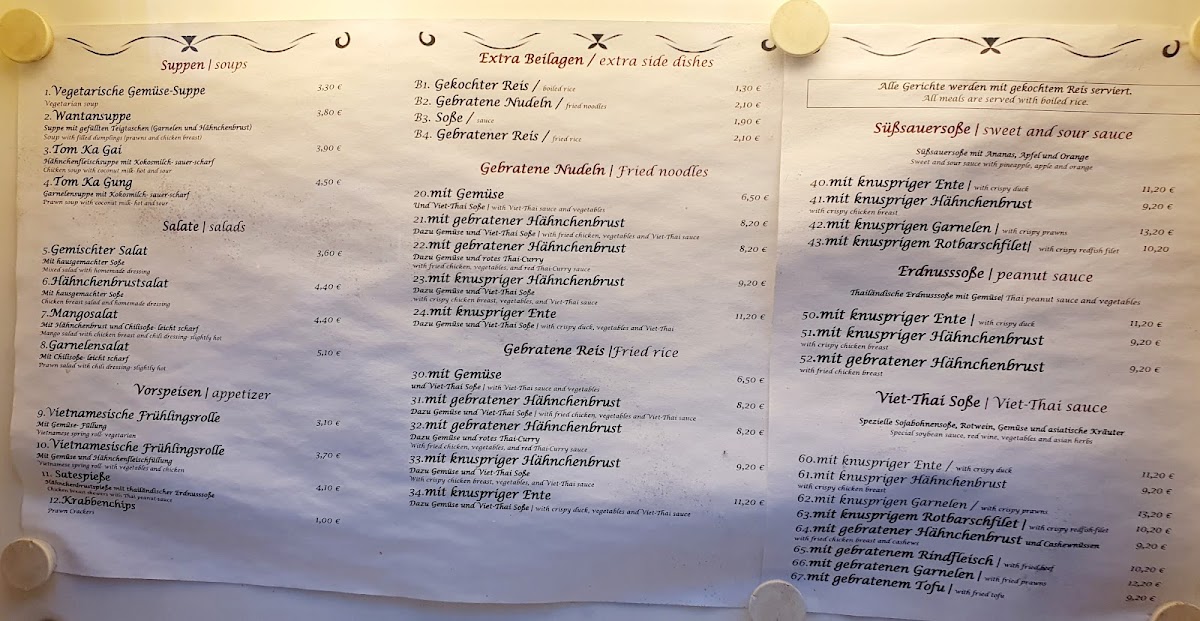 Suppen | soups
1. Vegetarische Gemüse-Suppe 3,30 €
Vegetarian soup
2. Wantansuppe 3,80 €
Suppe mit gefüllten Teigtaschen (Garnelen und Hähnchenbrust)
Soup with filled dumplings (prawns and chicken breast)
3. Tom Ka Gai 3,90 €
Hähnchenfleischsuppe mit Kokosmilch- sauer-scharf
Chicken soup with coconut milk- hot and sour
4. Tom Ka Gung 4,50 €
Garnelensuppe mit Kokosmilch- sauer-scharf
Prawn soup with coconut milk- hot and sour
Salate | salads
5. Gemischter Salat 3,60 €
Mit hausgemachter Soße
Mixed salad with homemade dressing
6. Hähnchenbrustsalat 4,40 €
Mit hausgemachter Soße
Chicken breast salad and homemade dressing
7. Mangosalat 4,40 €
Mit Hähnchenbrust und Chilisoße- leicht scharf
Mango salad with chicken breast and chili dressing- slightly hot
8. Garnelensalat 5,10 €
Mit Chilisoße- leicht scharf
Prawn salad with chili dressing- slightly hot
Vorspeisen | appetizer
9. Vietnamesische Frühlingsrolle 3,10 €
Mit Gemüse- Füllung
Vietnamese spring roll- vegetarian
10. Vietnamesische Frühlingsrolle 3,70 €
Mit Gemüse und Hähnchenfleischfüllung
Vietnamese spring roll- with vegetables and chicken
11. Satespieße 4,10 €
Hähnchenbrustspieße mit thailändischer Erdnusssoße
Chicken breast skewers with Thai peanut sauce
12. Krabbenchips 1,00 €
Prawn Crackers
Extra Beilagen / extra side dishes
B1. Gekochter Reis / boiled rice 1,30 €
B2. Gebratene Nudeln / fried noodles 2,10 €
B3. Soße / sauce 1,90 €
B4. Gebratener Reis / fried rice 2,10 €
Gebratene Nudeln | Fried noodles
20. mit Gemüse 6,50 €
Und Viet-Thai Soße | with Viet-Thai sauce and vegetables
21. mit gebratener Hähnchenbrust 8,20 €
Dazu Gemüse und Viet-Thai Soße | with fried chicken, vegetables and Viet-Thai sauce
22. mit gebratener Hähnchenbrust 8,20 €
Dazu Gemüse und rotes Thai-Curry
with fried chicken, vegetables, and red Thai-Curry sauce
23. mit knuspriger Hähnchenbrust 9,20 €
Dazu Gemüse und Viet-Thai Soße
with crispy chicken breast, vegetables, and Viet-Thai sauce
24. mit knuspriger Ente 11,20 €
Dazu Gemüse und Viet-Thai Soße | with crispy duck, vegetables and Viet-Thai
Gebratene Reis | Fried rice
30. mit Gemüse 6,50 €
und Viet-Thai Soße | with Viet-Thai sauce and vegetables
31. mit gebratener Hähnchenbrust 8,20 €
Dazu Gemüse und Viet-Thai Soße | with fried chicken, vegetables and Viet-Thai sauce
32. mit gebratener Hähnchenbrust 8,20 €
Dazu Gemüse und rotes Thai-Curry
With fried chicken, vegetables, and red Thai-Curry sauce
33. mit knuspriger Hähnchenbrust 9,20 €
Dazu Gemüse und Viet-Thai Soße
With crispy chicken breast, vegetables, and Viet-Thai sauce
34. mit knuspriger Ente 11,20 €
Dazu Gemüse und Viet-Thai Soße | with crispy duck, vegetables and Viet-Thai sauce
Alle Gerichte werden mit gekochtem Reis serviert.
All meals are served with boiled rice.
Süßsauersoße | sweet and sour sauce
Süßsauersoße mit Ananas, Apfel und Orange
Sweet and sour sauce with pineapple, apple and orange
40. mit knuspriger Ente | with crispy duck 11,20 €
41. mit knuspriger Hähnchenbrust 9,20 €
with crispy chicken breast
42. mit knusprigen Garnelen | with crispy prawns 13,20 €
43. mit knusprigem Rotbarschfilet | with crispy redfish filet 10,20
Erdnusssoße | peanut sauce
Thailändische Erdnusssoße mit Gemüse| Thai peanut sauce and vegetables
50. mit knuspriger Ente | with crispy duck 11,20 €
51. mit knuspriger Hähnchenbrust 9,20 €
with crispy chicken breast
52. mit gebratener Hähnchenbrust 9,20 €
with fried chicken breast
Viet-Thai Soße | Viet-Thai sauce
Spezielle Sojabohnensoße, Rotwein, Gemüse und asiatische Kräuter
Special soybean sauce, red wine, vegetables and asian herbs
60. mit knuspriger Ente / with crispy duck 11,20 €
61. mit knuspriger Hähnchenbrust 9,20 €
with crispy chicken breast
62. mit knusprigen Garnelen / with crispy prawns 13,20 €
63. mit knusprigem Rotbarschfilet | with crispy redfish-filet 10,20 €
64. mit gebratener Hähnchenbrust und Cashewnüssen 9,20 €
with fried chicken breast and cashews
65. mit gebratenem Rindfleisch | with fried beef 10,20 €
66. mit gebratenen Garnelen | with fried prawns 12,20 €
67. mit gebratenem Tofu | with fried tofu 9,20 €